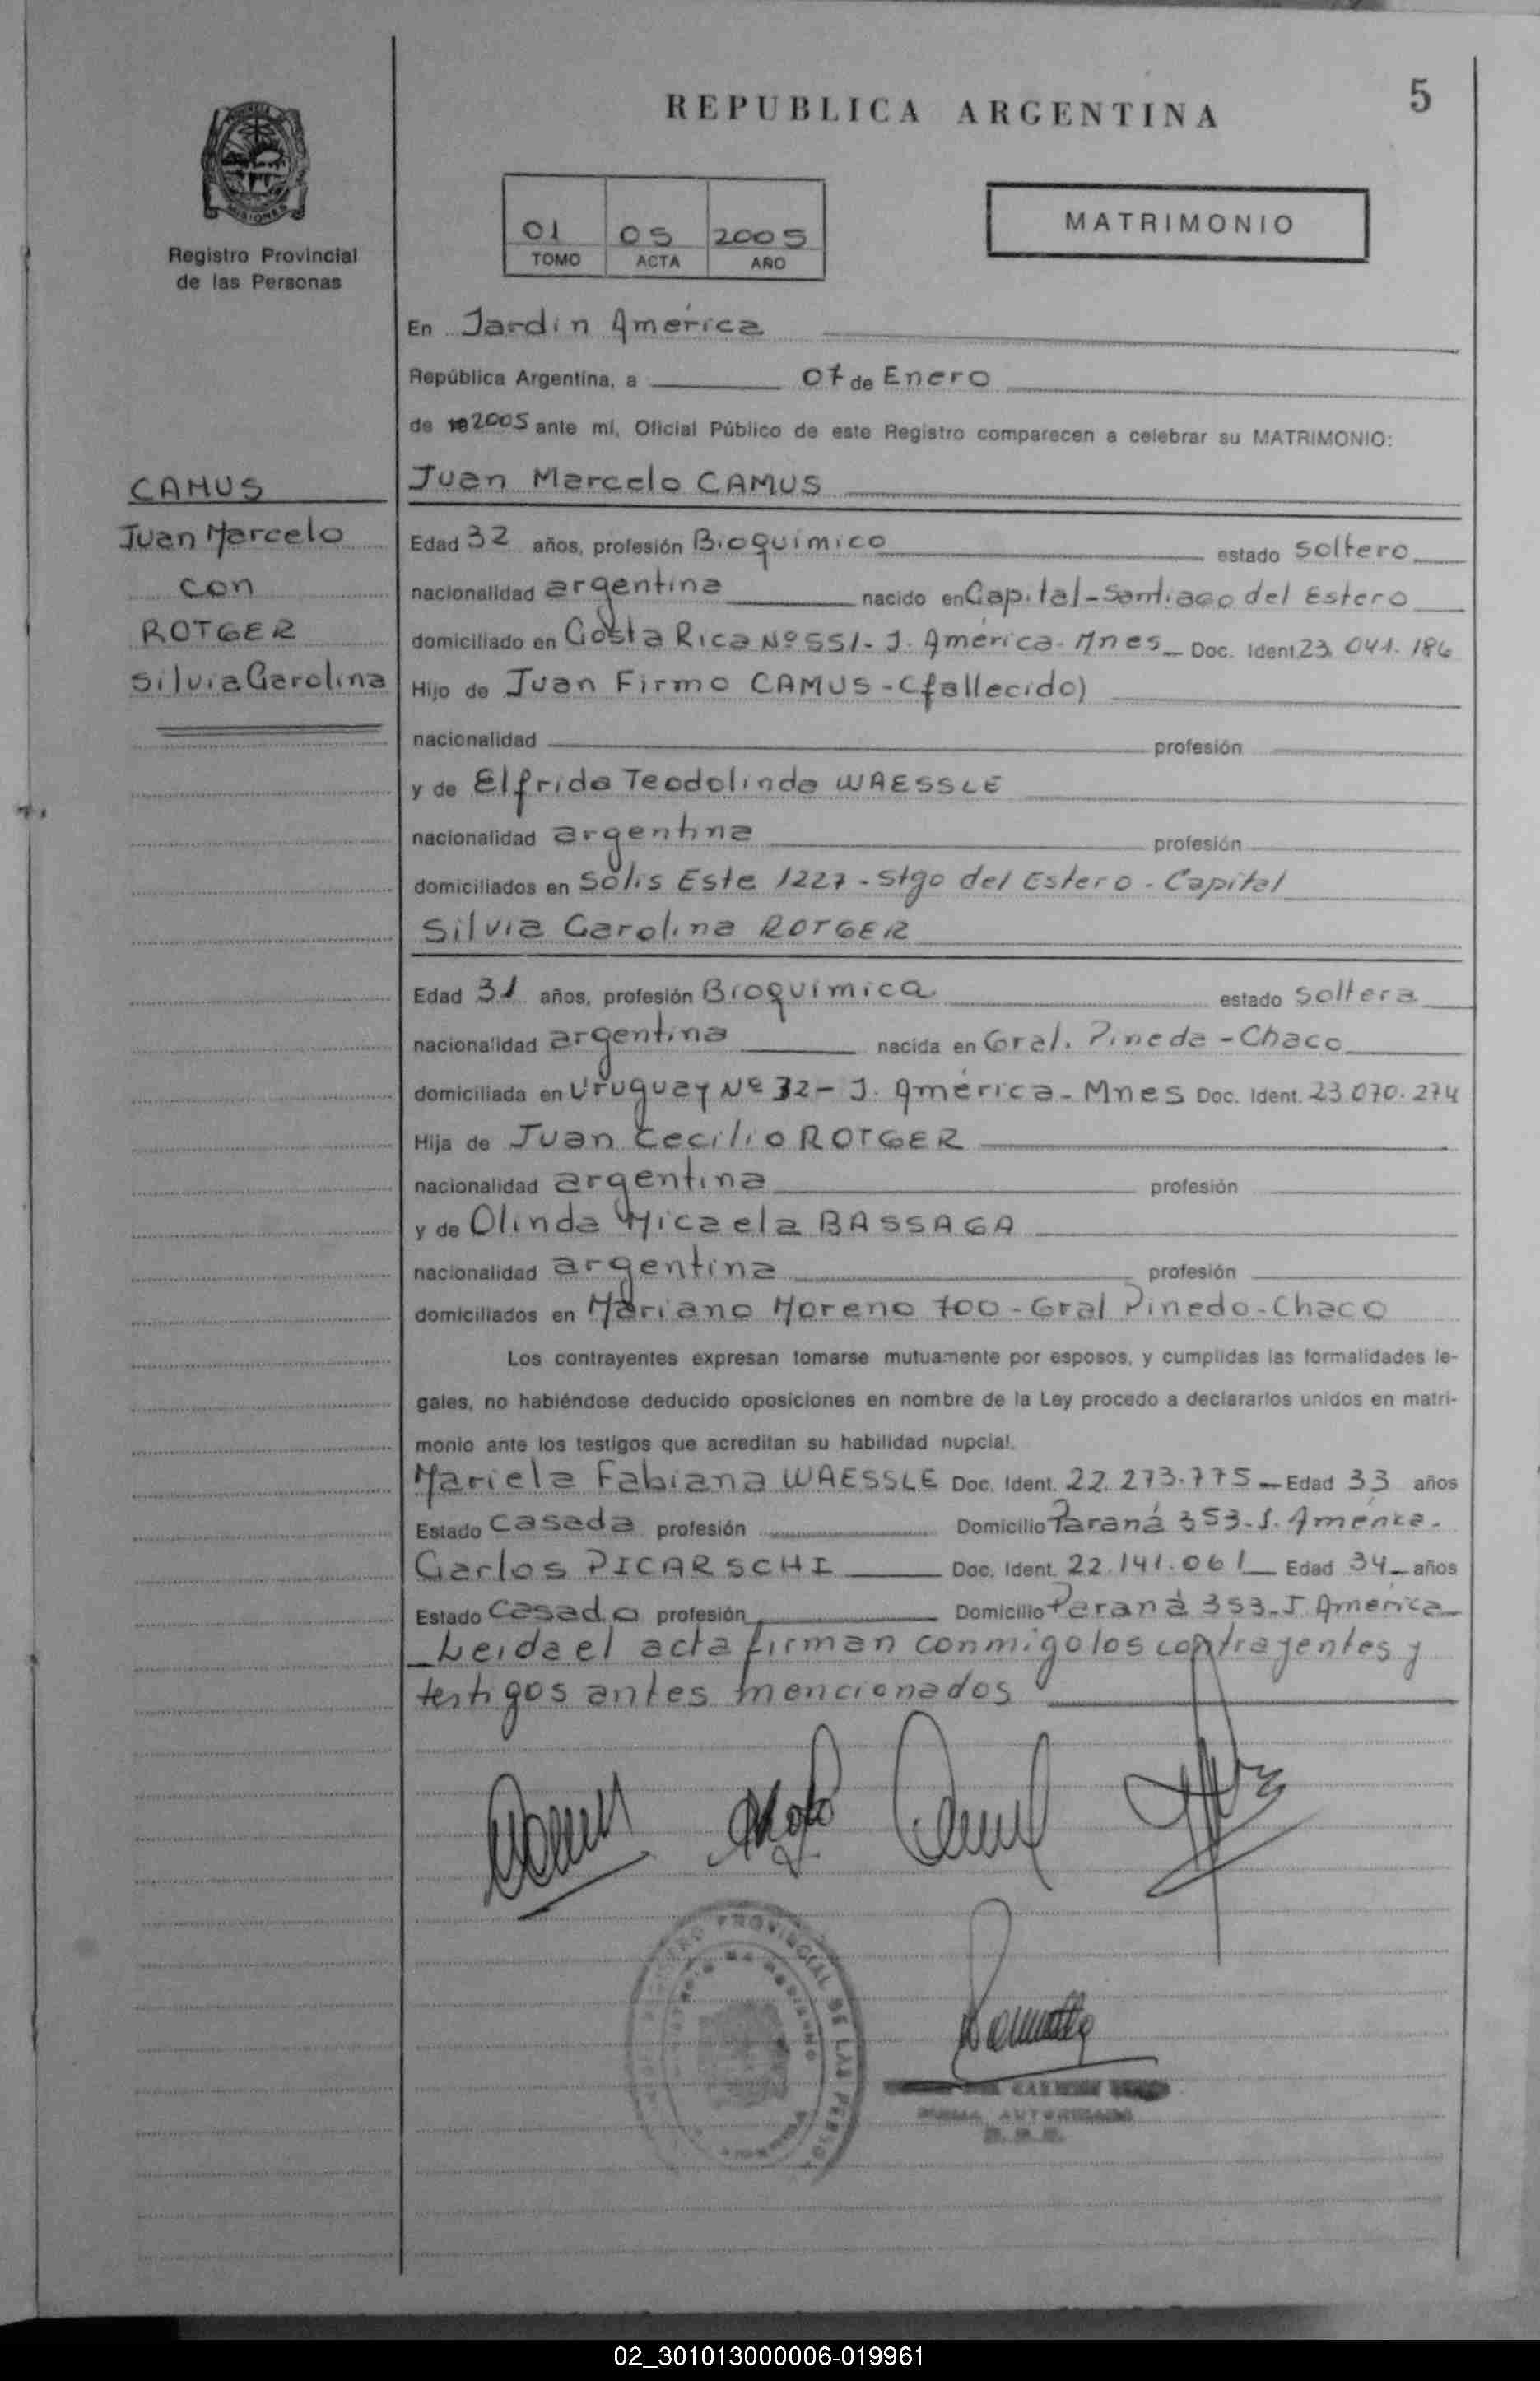 REPUBLICA ARGENTINA
5
MISIONES
Registro Provincial
de las Personas
01 05 2005
TOMO ACTA AÑO
MATRIMONIO
En Jardín América
República Argentina, a 07 de Enero
de 2005 ante mí, Oficial Público de este Registro comparecen a celebrar su MATRIMONIO:
CAMUS
Juan Marcelo
con
ROTGER
Silvia Carolina
Juan Marcelo CAMUS
Edad 32 años, profesión Bioquímico estado soltero
nacionalidad argentina nacido en Capital-Santiago del Estero
domiciliado en Costa Rica Nº 551- J. América- Mnes Doc. Ident 23.041.186
Hijo de Juan Firmo CAMUS - (fallecido)
nacionalidad profesión
y de Elfrida Teodolinda WAESSLE
nacionalidad argentina profesión
domiciliados en Solis Este 1227 - Stgo del Estero - Capital
Silvia Carolina ROTGER
Edad 31 años, profesión Bioquímica estado soltera
nacionalidad argentina nacida en Gral. Pinedo - Chaco
domiciliada en Uruguay Nº 32 - J. América - Mnes Doc. Ident. 23.070.274
Hija de Juan Cecilio ROTGER
nacionalidad argentina profesión
y de Olinda Micaela BASSAGA
nacionalidad argentina profesión
domiciliados en Mariano Moreno 700 - Gral Pinedo - Chaco
Los contrayentes expresan tomarse mutuamente por esposos, y cumplidas las formalidades le-
gales, no habiéndose deducido oposiciones en nombre de la Ley procedo a declararlos unidos en matri-
monio ante los testigos que acreditan su habilidad nupcial.
Mariela Fabiana WAESSLE Doc. Ident. 22.273.775 - Edad 33 años
Estado casada profesión Domicilio Paraná 353- J. América-
Carlos PICARSCHI Doc. Ident. 22.141.061 Edad 34 años
Estado casado profesión Domicilio Paraná 353- J América
Leida el acta firman conmigo los contrayentes y
testigos antes mencionados
PROVINCIAL DE LAS
FIRMA AUTORIZADA
02_301013000006-019961